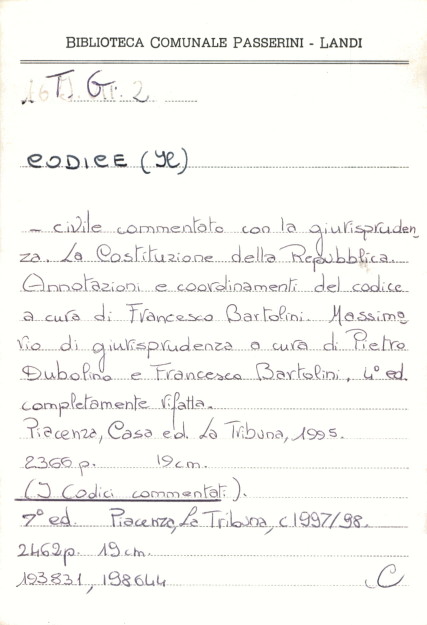 BIBLIOTECA COMUNALE PASSERINI - LANDI
T. Gr. 2
CODICE (Il)
- civile commentato con la giurispruden
za. La Costituzione della Repubblica.
Annotazioni e coordinamenti del codice
a cura di Francesco Bartolini. Massima
rio di giurisprudenza a cura di Pietro
Dubolino e Francesco Bartolini. 4º ed.
completamente rifatta.
Piacenza, Casa ed. La Tribuna, 1995.
2366 p. 19 cm.
(I Codici commentati).
7º ed. Piacenza, La Tribuna, c1997/98.
2462 p. 19 cm.
193831, 198644 C